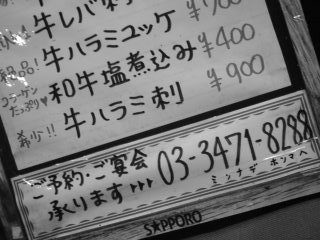 牛レバ刺
牛ハラミユッケ ¥700
コラーゲンたっぷり♥ 和牛塩煮込み ¥400
希少!! 牛ハラミ刺 ¥900
ご予約・ご宴会
承ります››› 03-3471-8288
ミンナデ ホンマヘ
SAPPORO